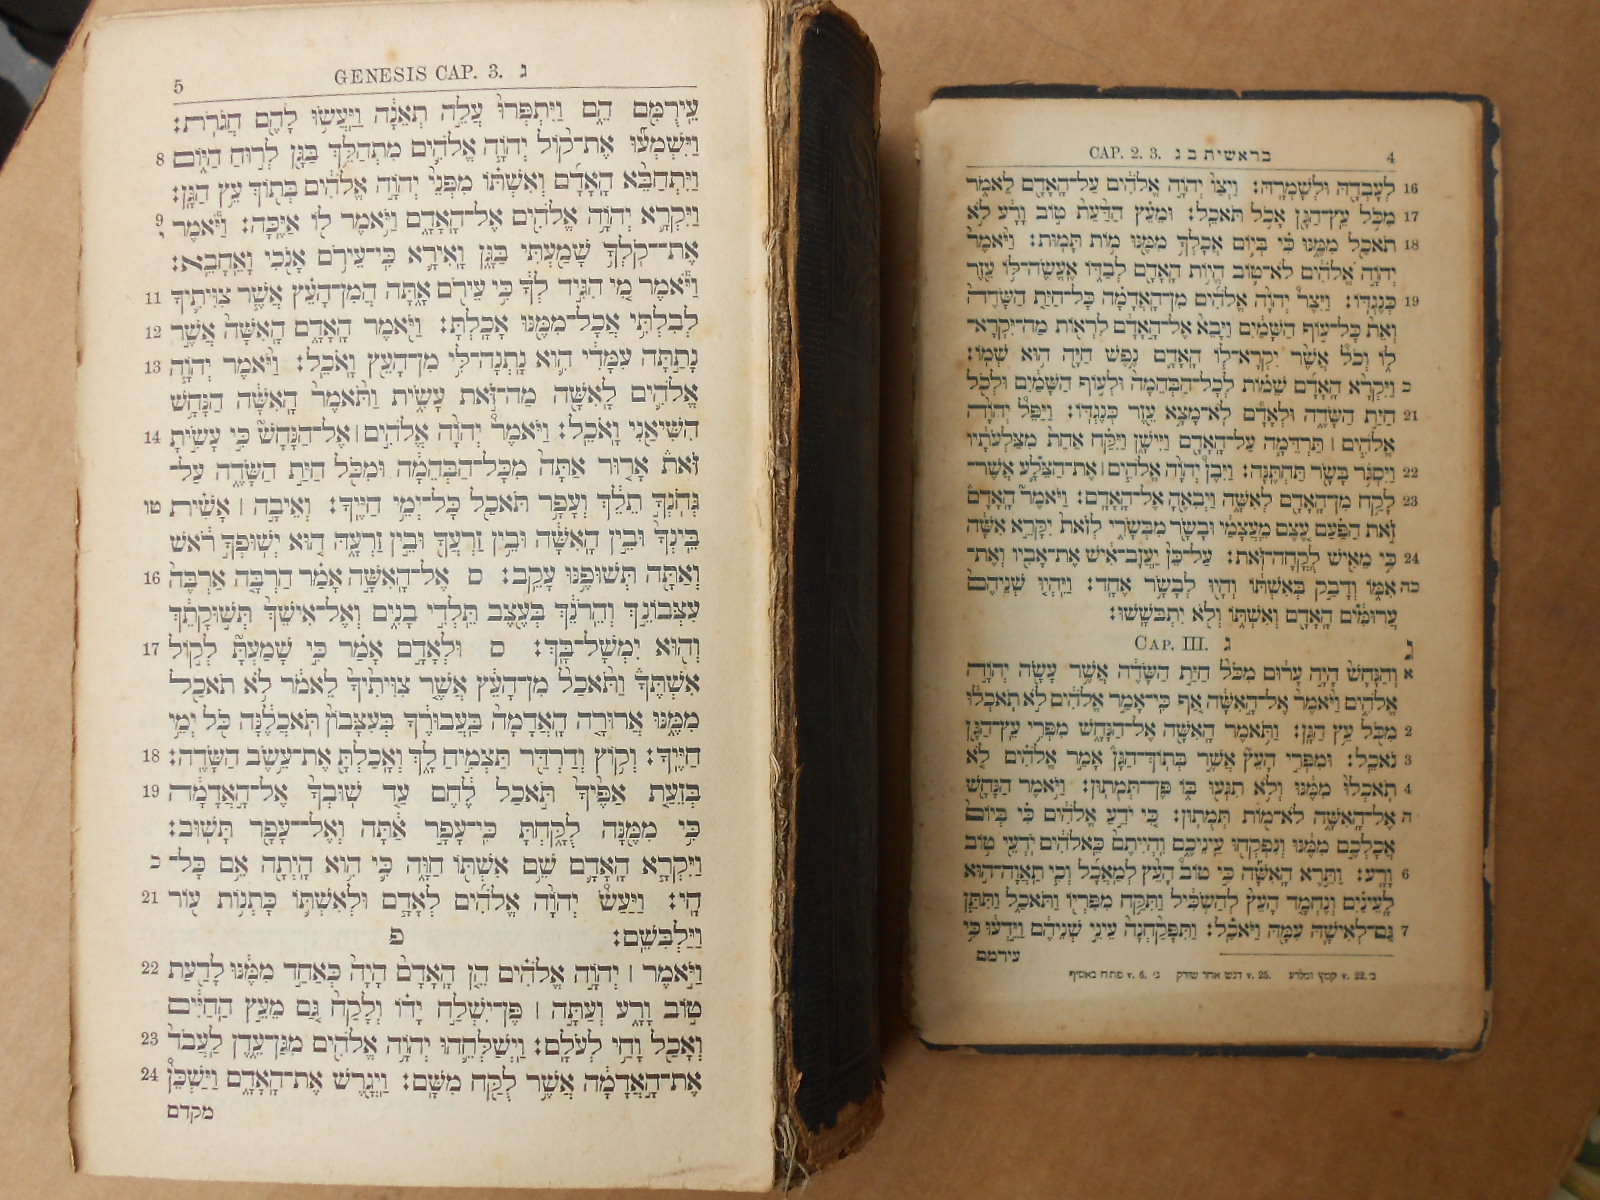 CAP. 2. 3. בראשית ב ג 4
16 לְעָבְדָהּ וּלְשָׁמְרָהּ׃ וַיְצַו יְהוָה אֱלֹהִים עַל־הָאָדָם לֵאמֹר
17 מִכֹּל עֵץ־הַגָּן אָכֹל תֹּאכֵל׃ וּמֵעֵץ הַדַּעַת טוֹב וָרָע לֹא
18 תֹאכַל מִמֶּנּוּ כִּי בְּיוֹם אֲכָלְךָ מִמֶּנּוּ מוֹת תָּמוּת׃ וַיֹּאמֶר
יְהוָה אֱלֹהִים לֹא־טוֹב הֱיוֹת הָאָדָם לְבַדּוֹ אֶעֱשֶׂה־לּוֹ עֵזֶר
19 כְּנֶגְדּוֹ׃ וַיִּצֶר יְהוָה אֱלֹהִים מִן־הָאֲדָמָה כָּל־חַיַּת הַשָּׂדֶה
וְאֵת כָּל־עוֹף הַשָּׁמַיִם וַיָּבֵא אֶל־הָאָדָם לִרְאוֹת מַה־יִּקְרָא־
לוֹ וְכֹל אֲשֶׁר יִקְרָא־לוֹ הָאָדָם נֶפֶשׁ חַיָּה הוּא שְׁמוֹ׃
כ וַיִּקְרָא הָאָדָם שֵׁמוֹת לְכָל־הַבְּהֵמָה וּלְעוֹף הַשָּׁמַיִם וּלְכֹל
21 חַיַּת הַשָּׂדֶה וּלְאָדָם לֹא־מָצָא עֵזֶר כְּנֶגְדּוֹ׃ וַיַּפֵּל יְהוָה
אֱלֹהִים ׀ תַּרְדֵּמָה עַל־הָאָדָם וַיִּישָׁן וַיִּקַּח אַחַת מִצַּלְעֹתָיו
22 וַיִּסְגֹּר בָּשָׂר תַּחְתֶּנָּה׃ וַיִּבֶן יְהוָה אֱלֹהִים ׀ אֶת־הַצֵּלָע אֲשֶׁר־
23 לָקַח מִן־הָאָדָם לְאִשָּׁה וַיְבִאֶהָ אֶל־הָאָדָם׃ וַיֹּאמֶר הָאָדָם
זֹאת הַפַּעַם עֶצֶם מֵעֲצָמַי וּבָשָׂר מִבְּשָׂרִי לְזֹאת יִקָּרֵא אִשָּׁה
24 כִּי מֵאִישׁ לֻקֳחָה־זֹּאת׃ עַל־כֵּן יַעֲזָב־אִישׁ אֶת־אָבִיו וְאֶת־
כה אִמּוֹ וְדָבַק בְּאִשְׁתּוֹ וְהָיוּ לְבָשָׂר אֶחָד׃ וַיִּהְיוּ שְׁנֵיהֶם
עֲרוּמִּים הָאָדָם וְאִשְׁתּוֹ וְלֹא יִתְבֹּשָׁשׁוּ׃
ג CAP. III. ג
א וְהַנָּחָשׁ הָיָה עָרוּם מִכֹּל חַיַּת הַשָּׂדֶה אֲשֶׁר עָשָׂה יְהוָה
אֱלֹהִים וַיֹּאמֶר אֶל־הָאִשָּׁה אַף כִּי־אָמַר אֱלֹהִים לֹא תֹאכְלוּ
2 מִכֹּל עֵץ הַגָּן׃ וַתֹּאמֶר הָאִשָּׁה אֶל־הַנָּחָשׁ מִפְּרִי עֵץ־הַגָּן
3 נֹאכֵל׃ וּמִפְּרִי הָעֵץ אֲשֶׁר בְּתוֹךְ־הַגָּן אָמַר אֱלֹהִים לֹא
4 תֹאכְלוּ מִמֶּנּוּ וְלֹא תִגְּעוּ בּוֹ פֶּן־תְּמֻתוּן׃ וַיֹּאמֶר הַנָּחָשׁ
ה אֶל־הָאִשָּׁה לֹא־מוֹת תְּמֻתוּן׃ כִּי יֹדֵעַ אֱלֹהִים כִּי בְּיוֹם
אֲכָלְכֶם מִמֶּנּוּ וְנִפְקְחוּ עֵינֵיכֶם וִהְיִיתֶם כֵּאלֹהִים יֹדְעֵי טוֹב
6 וָרָע׃ וַתֵּרֶא הָאִשָּׁה כִּי טוֹב הָעֵץ לְמַאֲכָל וְכִי תַאֲוָה־הוּא
לָעֵינַיִם וְנֶחְמָד הָעֵץ לְהַשְׂכִּיל וַתִּקַּח מִפִּרְיוֹ וַתֹּאכַל וַתִּתֵּן
7 גַּם־לְאִישָׁהּ עִמָּהּ וַיֹּאכַל׃ וַתִּפָּקַחְנָה עֵינֵי שְׁנֵיהֶם וַיֵּדְעוּ כִּי
עירמם
ב׳ v. 22. קמץ ומלרע v. 25. דגש אחר שורק ג׳ v. 6. פתח באסיף
5 GENESIS CAP. 3. ג
עֵירֻמִּם הֵם וַיִּתְפְּרוּ עֲלֵה תְאֵנָה וַיַּעֲשׂוּ לָהֶם חֲגֹרֹת׃
8 וַיִּשְׁמְעוּ אֶת־קוֹל יְהוָה אֱלֹהִים מִתְהַלֵּךְ בַּגָּן לְרוּחַ הַיּוֹם
וַיִּתְחַבֵּא הָאָדָם וְאִשְׁתּוֹ מִפְּנֵי יְהוָה אֱלֹהִים בְּתוֹךְ עֵץ הַגָּן׃
9 וַיִּקְרָא יְהוָה אֱלֹהִים אֶל־הָאָדָם וַיֹּאמֶר לוֹ אַיֶּכָּה׃ וַיֹּאמֶר
אֶת־קֹלְךָ שָׁמַעְתִּי בַּגָּן וָאִירָא כִּי־עֵירֹם אָנֹכִי וָאֵחָבֵא׃
11 וַיֹּאמֶר מִי הִגִּיד לְךָ כִּי עֵירֹם אָתָּה הֲמִן־הָעֵץ אֲשֶׁר צִוִּיתִיךָ
12 לְבִלְתִּי אֲכָל־מִמֶּנּוּ אָכָלְתָּ׃ וַיֹּאמֶר הָאָדָם הָאִשָּׁה אֲשֶׁר
13 נָתַתָּה עִמָּדִי הִוא נָתְנָה־לִּי מִן־הָעֵץ וָאֹכֵל׃ וַיֹּאמֶר יְהוָה
אֱלֹהִים לָאִשָּׁה מַה־זֹּאת עָשִׂית וַתֹּאמֶר הָאִשָּׁה הַנָּחָשׁ
14 הִשִּׁיאַנִי וָאֹכֵל׃ וַיֹּאמֶר יְהוָה אֱלֹהִים ׀ אֶל־הַנָּחָשׁ כִּי עָשִׂיתָ
זֹּאת אָרוּר אַתָּה מִכָּל־הַבְּהֵמָה וּמִכֹּל חַיַּת הַשָּׂדֶה עַל־
טו גְּחֹנְךָ תֵלֵךְ וְעָפָר תֹּאכַל כָּל־יְמֵי חַיֶּיךָ׃ וְאֵיבָה ׀ אָשִׁית
בֵּינְךָ וּבֵין הָאִשָּׁה וּבֵין זַרְעֲךָ וּבֵין זַרְעָהּ הוּא יְשׁוּפְךָ רֹאשׁ
16 וְאַתָּה תְּשׁוּפֶנּוּ עָקֵב׃ ס אֶל־הָאִשָּׁה אָמַר הַרְבָּה אַרְבֶּה
עִצְּבוֹנֵךְ וְהֵרֹנֵךְ בְּעֶצֶב תֵּלְדִי בָנִים וְאֶל־אִישֵׁךְ תְּשׁוּקָתֵךְ
17 וְהוּא יִמְשָׁל־בָּךְ׃ ס וּלְאָדָם אָמַר כִּי שָׁמַעְתָּ לְקוֹל
אִשְׁתֶּךָ וַתֹּאכַל מִן־הָעֵץ אֲשֶׁר צִוִּיתִיךָ לֵאמֹר לֹא תֹאכַל
מִמֶּנּוּ אֲרוּרָה הָאֲדָמָה בַּעֲבוּרֶךָ בְּעִצָּבוֹן תֹּאכֲלֶנָּה כֹּל יְמֵי
18 חַיֶּיךָ׃ וְקוֹץ וְדַרְדַּר תַּצְמִיחַ לָךְ וְאָכַלְתָּ אֶת־עֵשֶׂב הַשָּׂדֶה׃
19 בְּזֵעַת אַפֶּיךָ תֹּאכַל לֶחֶם עַד שׁוּבְךָ אֶל־הָאֲדָמָה
כִּי מִמֶּנָּה לֻקָּחְתָּ כִּי־עָפָר אַתָּה וְאֶל־עָפָר תָּשׁוּב׃
כ וַיִּקְרָא הָאָדָם שֵׁם אִשְׁתּוֹ חַוָּה כִּי הִוא הָיְתָה אֵם כָּל־
21 חָי׃ וַיַּעַשׂ יְהוָה אֱלֹהִים לְאָדָם וּלְאִשְׁתּוֹ כָּתְנוֹת עוֹר
וַיַּלְבִּשֵׁם׃ פ
22 וַיֹּאמֶר ׀ יְהוָה אֱלֹהִים הֵן הָאָדָם הָיָה כְּאַחַד מִמֶּנּוּ לָדַעַת
טוֹב וָרָע וְעַתָּה ׀ פֶּן־יִשְׁלַח יָדוֹ וְלָקַח גַּם מֵעֵץ הַחַיִּים
23 וְאָכַל וָחַי לְעֹלָם׃ וַיְשַׁלְּחֵהוּ יְהוָה אֱלֹהִים מִגַּן־עֵדֶן לַעֲבֹד
24 אֶת־הָאֲדָמָה אֲשֶׁר לֻקַּח מִשָּׁם׃ וַיְגָרֶשׁ אֶת־הָאָדָם וַיַּשְׁכֵּן
מקדם